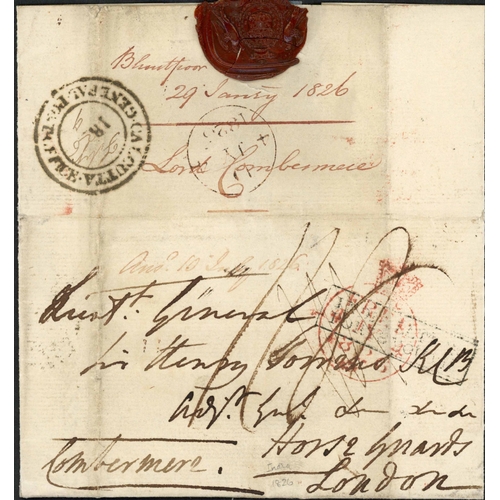 Bhurtpoor
29 Jany 1826
Lord Combermere
CALCUTTA GENERAL POST
Ansd. 10 July 1826
Lieutt. General
Sir Henry Torrens KCB
Adjt. Genl. &c &c &c
Horse Guards
London
Combermere.
India
1826